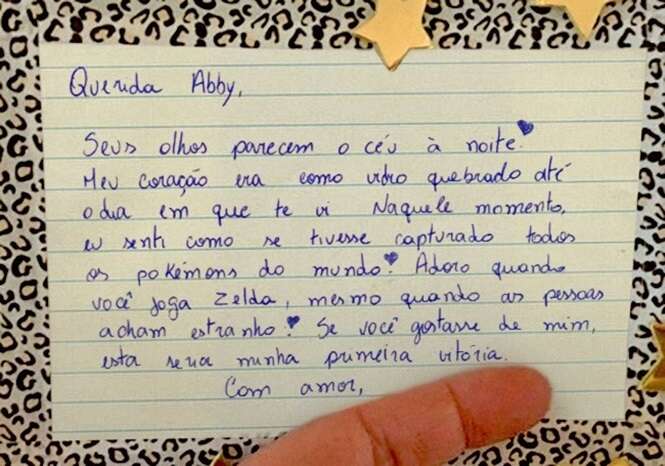 Querida Abby,
Seus olhos parecem o céu à noite!
Meu coração era como vidro quebrado até
o dia em que te vi Naquele momento,
eu senti como se tivesse capturado todos
os pokémons do mundo! Adoro quando
você joga Zelda, mesmo quando as pessoas
acham estranho! Se você gostasse de mim,
esta seria minha primeira vitória.
Com amor,